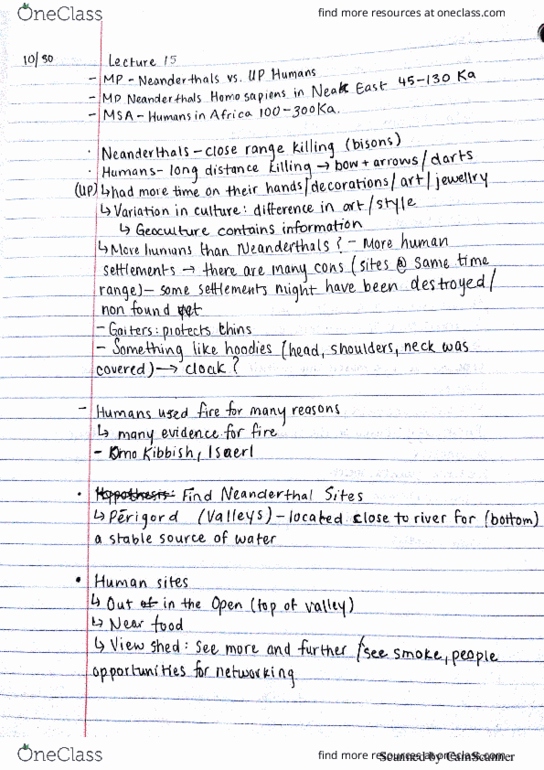 OneClass find more resources at oneclass.com
10/30 Lecture 15
- MP - Neanderthals vs. UP Humans
- MP Neanderthals Homo sapiens in Near East 45-130 Ka
- MSA - Humans in Africa 100-300Ka.
· Neanderthals - close range killing (bisons)
· Humans - long distance killing → bow + arrows / darts
(UP) ↳ had more time on their hands/decorations/art/jewellry
↳ Variation in culture: difference in art/style
↳ Geoculture contains information
↳ More humans than Neanderthals? - More human
settlements → there are many cons (sites @ same time
range) - some settlements might have been destroyed/
non found yet
- Gaiters: protects shins
- Something like hoodies (head, shoulders, neck was
covered) → cloak?
- Humans used fire for many reasons
↳ many evidence for fire
- Omo Kibbish, Isaerl
• Hypothesis: Find Neanderthal Sites
↳ Périgord (Valleys) - located close to river for (bottom)
a stable source of water
• Human sites
↳ Out of in the Open (top of valley)
↳ Near food
↳ View shed: see more and further / see smoke, people
opportunities for networking
OneClass find more resources at oneclass.com
Scanned by CamScanner